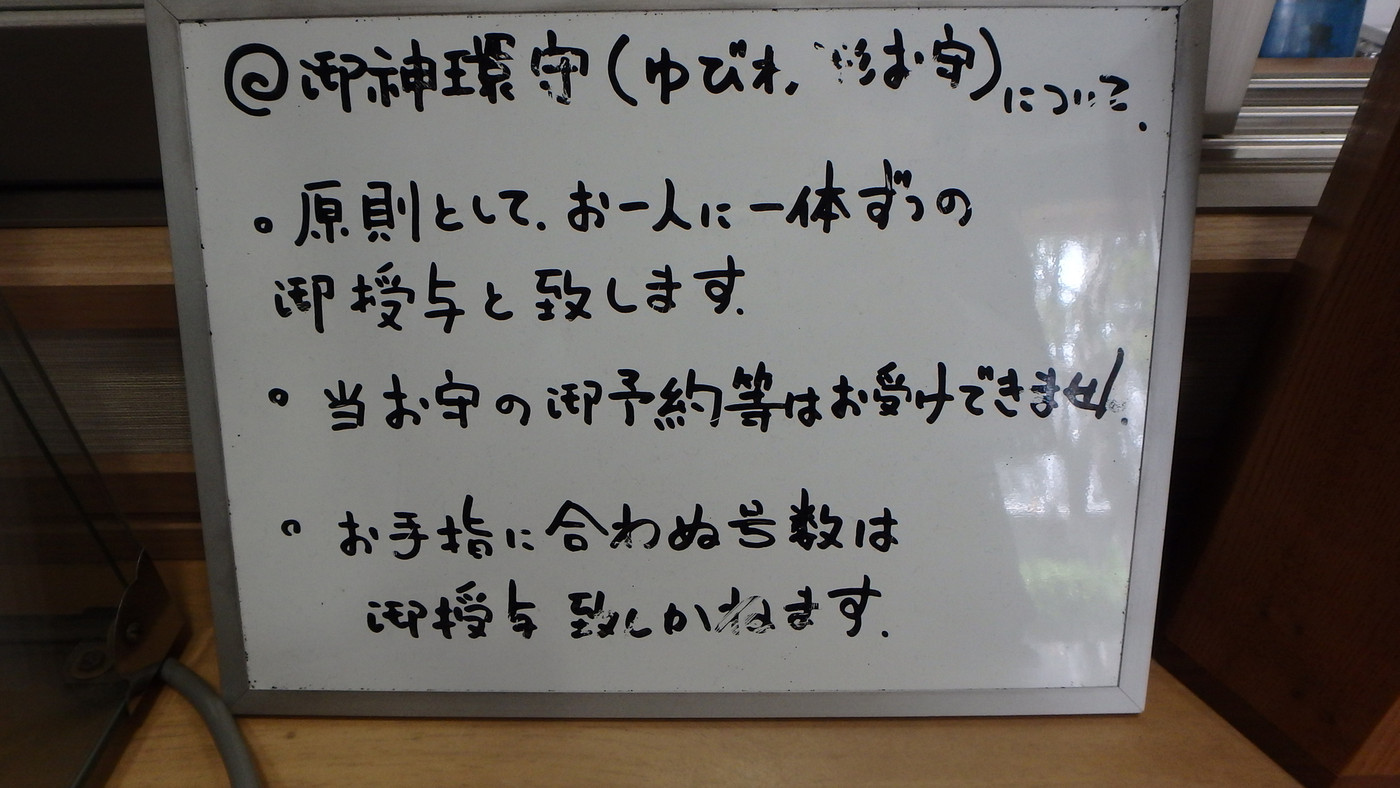 @御神環守(ゆびわ 形お守)について.
。原則として.お一人に一体ずつの
御授与と致します.
。当お守の御予約等はお受けできません.
。お手指に合わぬ号数は
御授与致しかねます.